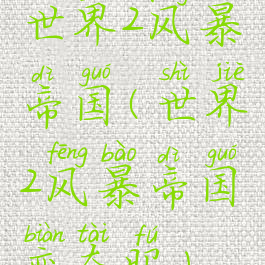 世界2风暴
dì guó shì jiè
帝国(世界
fēng bào dì guó
2风暴帝国
biàn tài fú